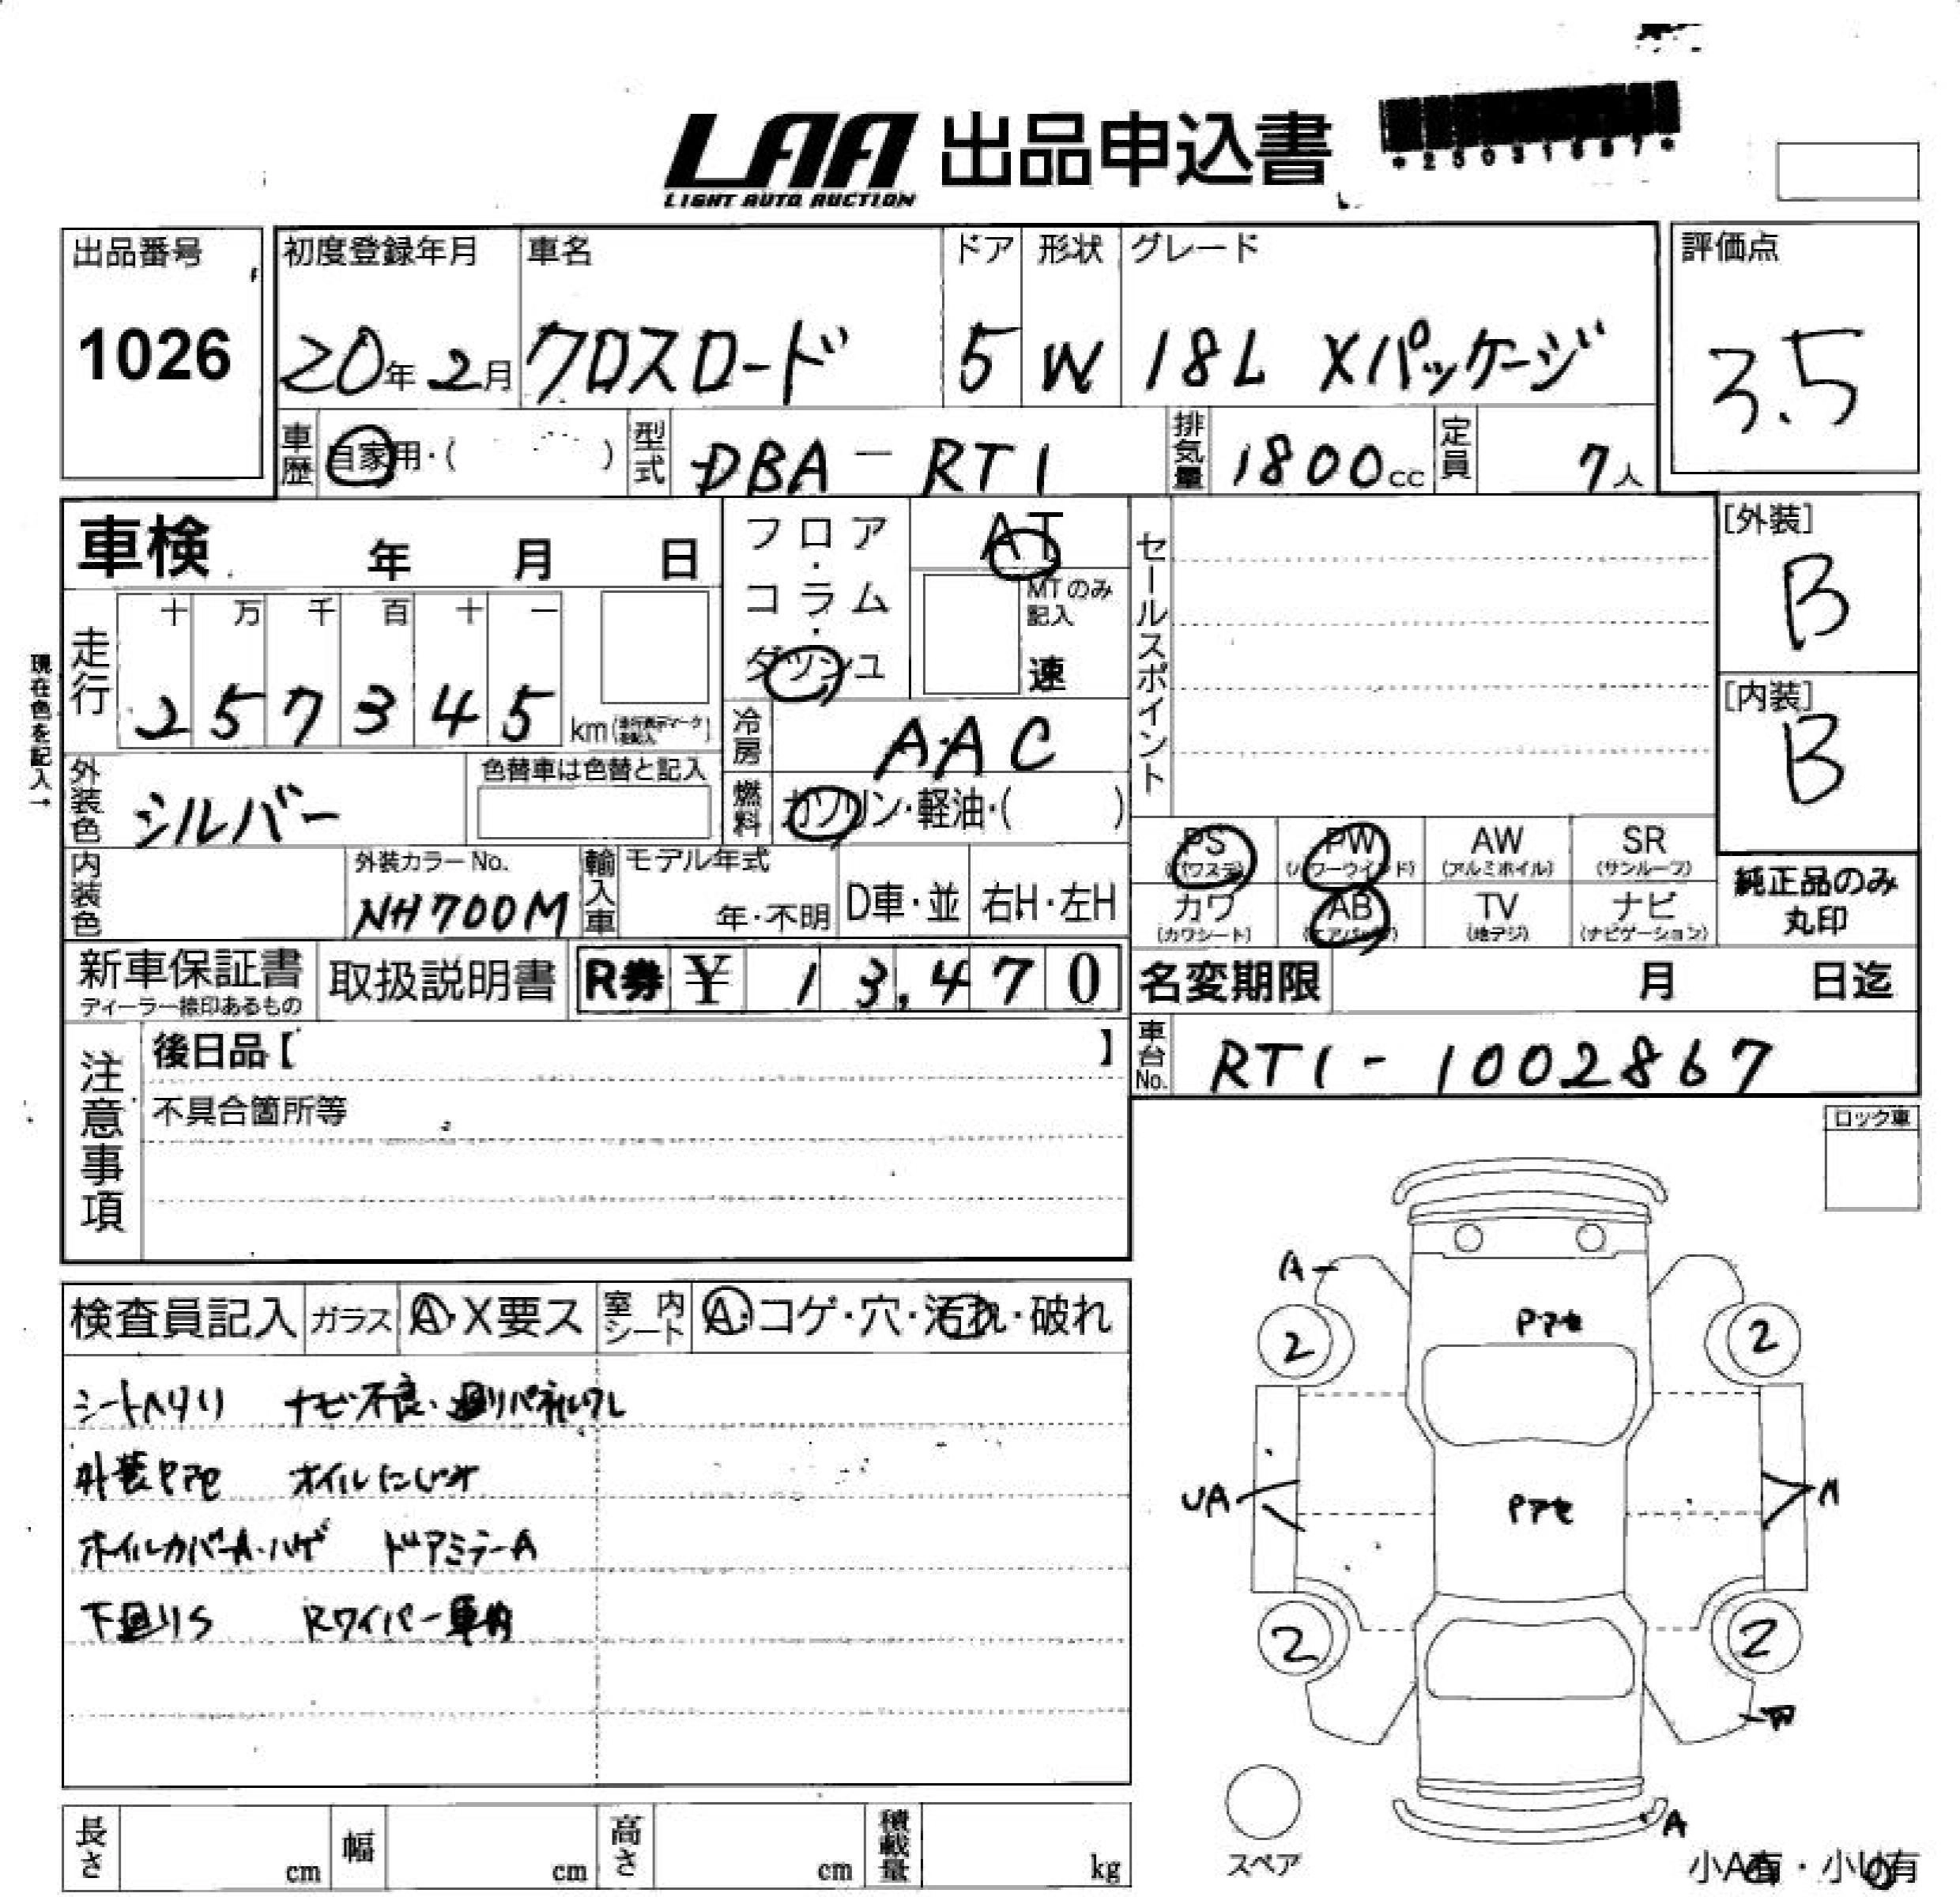 LAA 出品申込書
LIGHT AUTO AUCTION
出品番号 初度登録年月 車名 ドア 形状 グレード 評価点
1026 20年 2月 クロスロード 5 W 18L Xパッケージ 3.5
車歴 自家用・( ) 型式 DBA-RT1 排気量 1800cc 定員 7人
車検 年 月 日
フロア・コラム・ダッシュ
AT
MTのみ記入
速
セールスポイント
[外装]
B
[内装]
B
現在色を記入→
走行
十 万 千 百 十 一
2 5 7 3 4 5 km
冷房 AAC
外装色 シルバー
色替車は色替と記入
燃料 ガソリン・軽油・( )
PS PW AW SR
(パワステ) (パワーウインド) (アルミホイル) (サンルーフ)
カワ AB TV ナビ
(カワシート) (エアバッグ) (地デジ) (ナビゲーション)
純正品のみ
丸印
内装色
外装カラーNo.
NH700M
輸入車
モデル年式
年・不明
D車・並 右H・左H
新車保証書
ディーラー捺印あるもの
取扱説明書 R券 ¥ 13,470
名変期限 月 日迄
注意事項
後日品【 】
車台No. RT1-1002867
不具合箇所等
ロック車
検査員記入 ガラス A・X要ス 室内シート A・コゲ・穴・汚れ・破れ
シートヘタリ ナビ不良・
外装 オイルにじみ
ホイルカバーA・ハゲ ドアミラーA
下廻りS Rワイパー
A
Pアセ
2 2
UA
Pアセ
2 2
A
スペア
小A有・小U有
長さ cm 幅 cm 高さ cm 積載量 kg